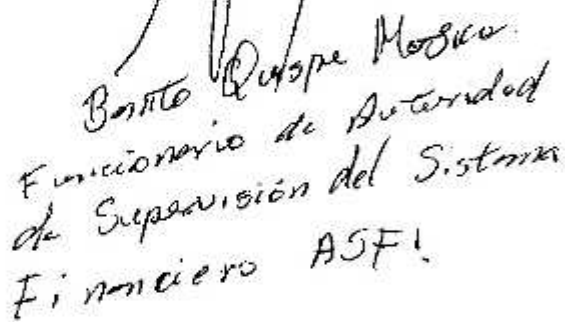 Benito Quispe Mogica.
Funcionario de Autoridad
de Supervisión del Sistema
Financiero ASFI.